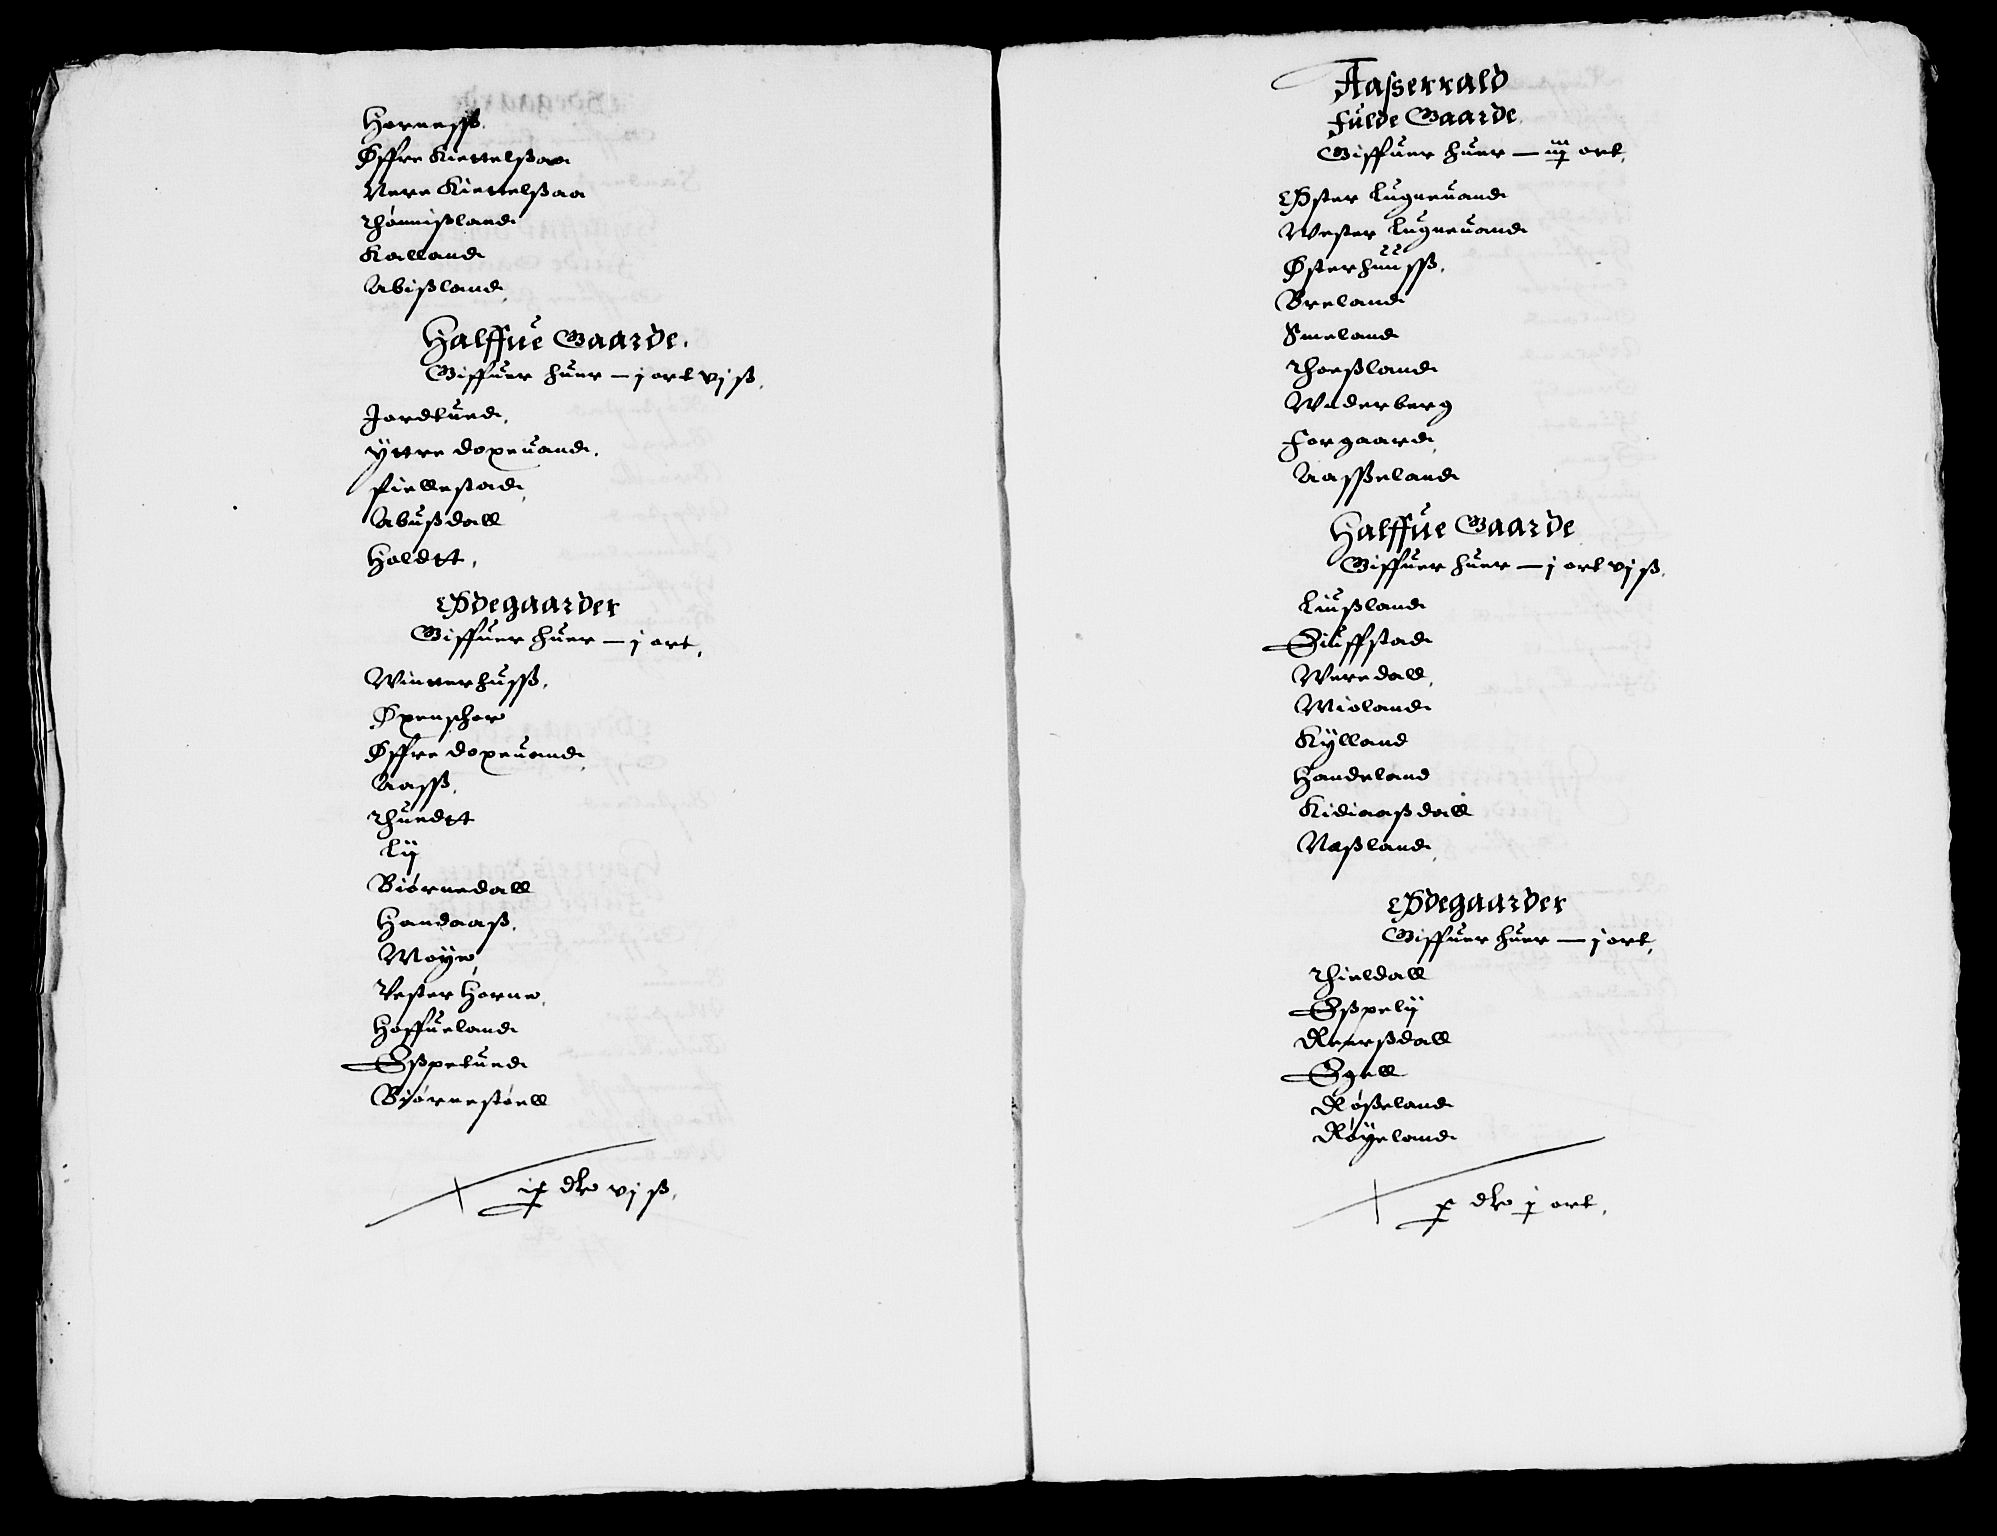 Horneſſ.
Øffre Kiettelßaa
Nere Kiettelßaa
Thönnißland
Kalland
Abißland,
Halffue Gaarde.
Giffuer huer — j ort vj ß.
Jordlund,
Yttre Dopeuand.
Fiellestad,
Abußdall
Holdtt,
Ödegaarder
Giffuer huer — j ort,
Winterhuſſ,
Øffre Dopeuand,
Aaſſ,
Thuedtt
Lÿ
Biörnedall
Handaaß,
Møÿe,
Vester Horne,
Hoffueland
Eßpelund
Biörnestöell
ix dlr vj ß,
Aaßerrald
Fulde Gaarde
Giffuer huer — iij ort,
Öster Lugneuand
Wester Lugneuand
Østerhuuſſ,
Breland
Smeland
Thorßland
Waderberg
Forgaard,
Aaſſeland
Halffue Gaarde
Giffuer huer — j ort vj ß.
Liußland
Eiuffstad
Weredall,
Mioland
Kÿlland
Handeland
Kidiaaßdall
Naßland,
Ödegaarder
Giffuer huer — j ort,
Thieldall
Eßpelÿ
Reerßdall
Egell
Rößeland
Röÿeland
x dlr j ort,